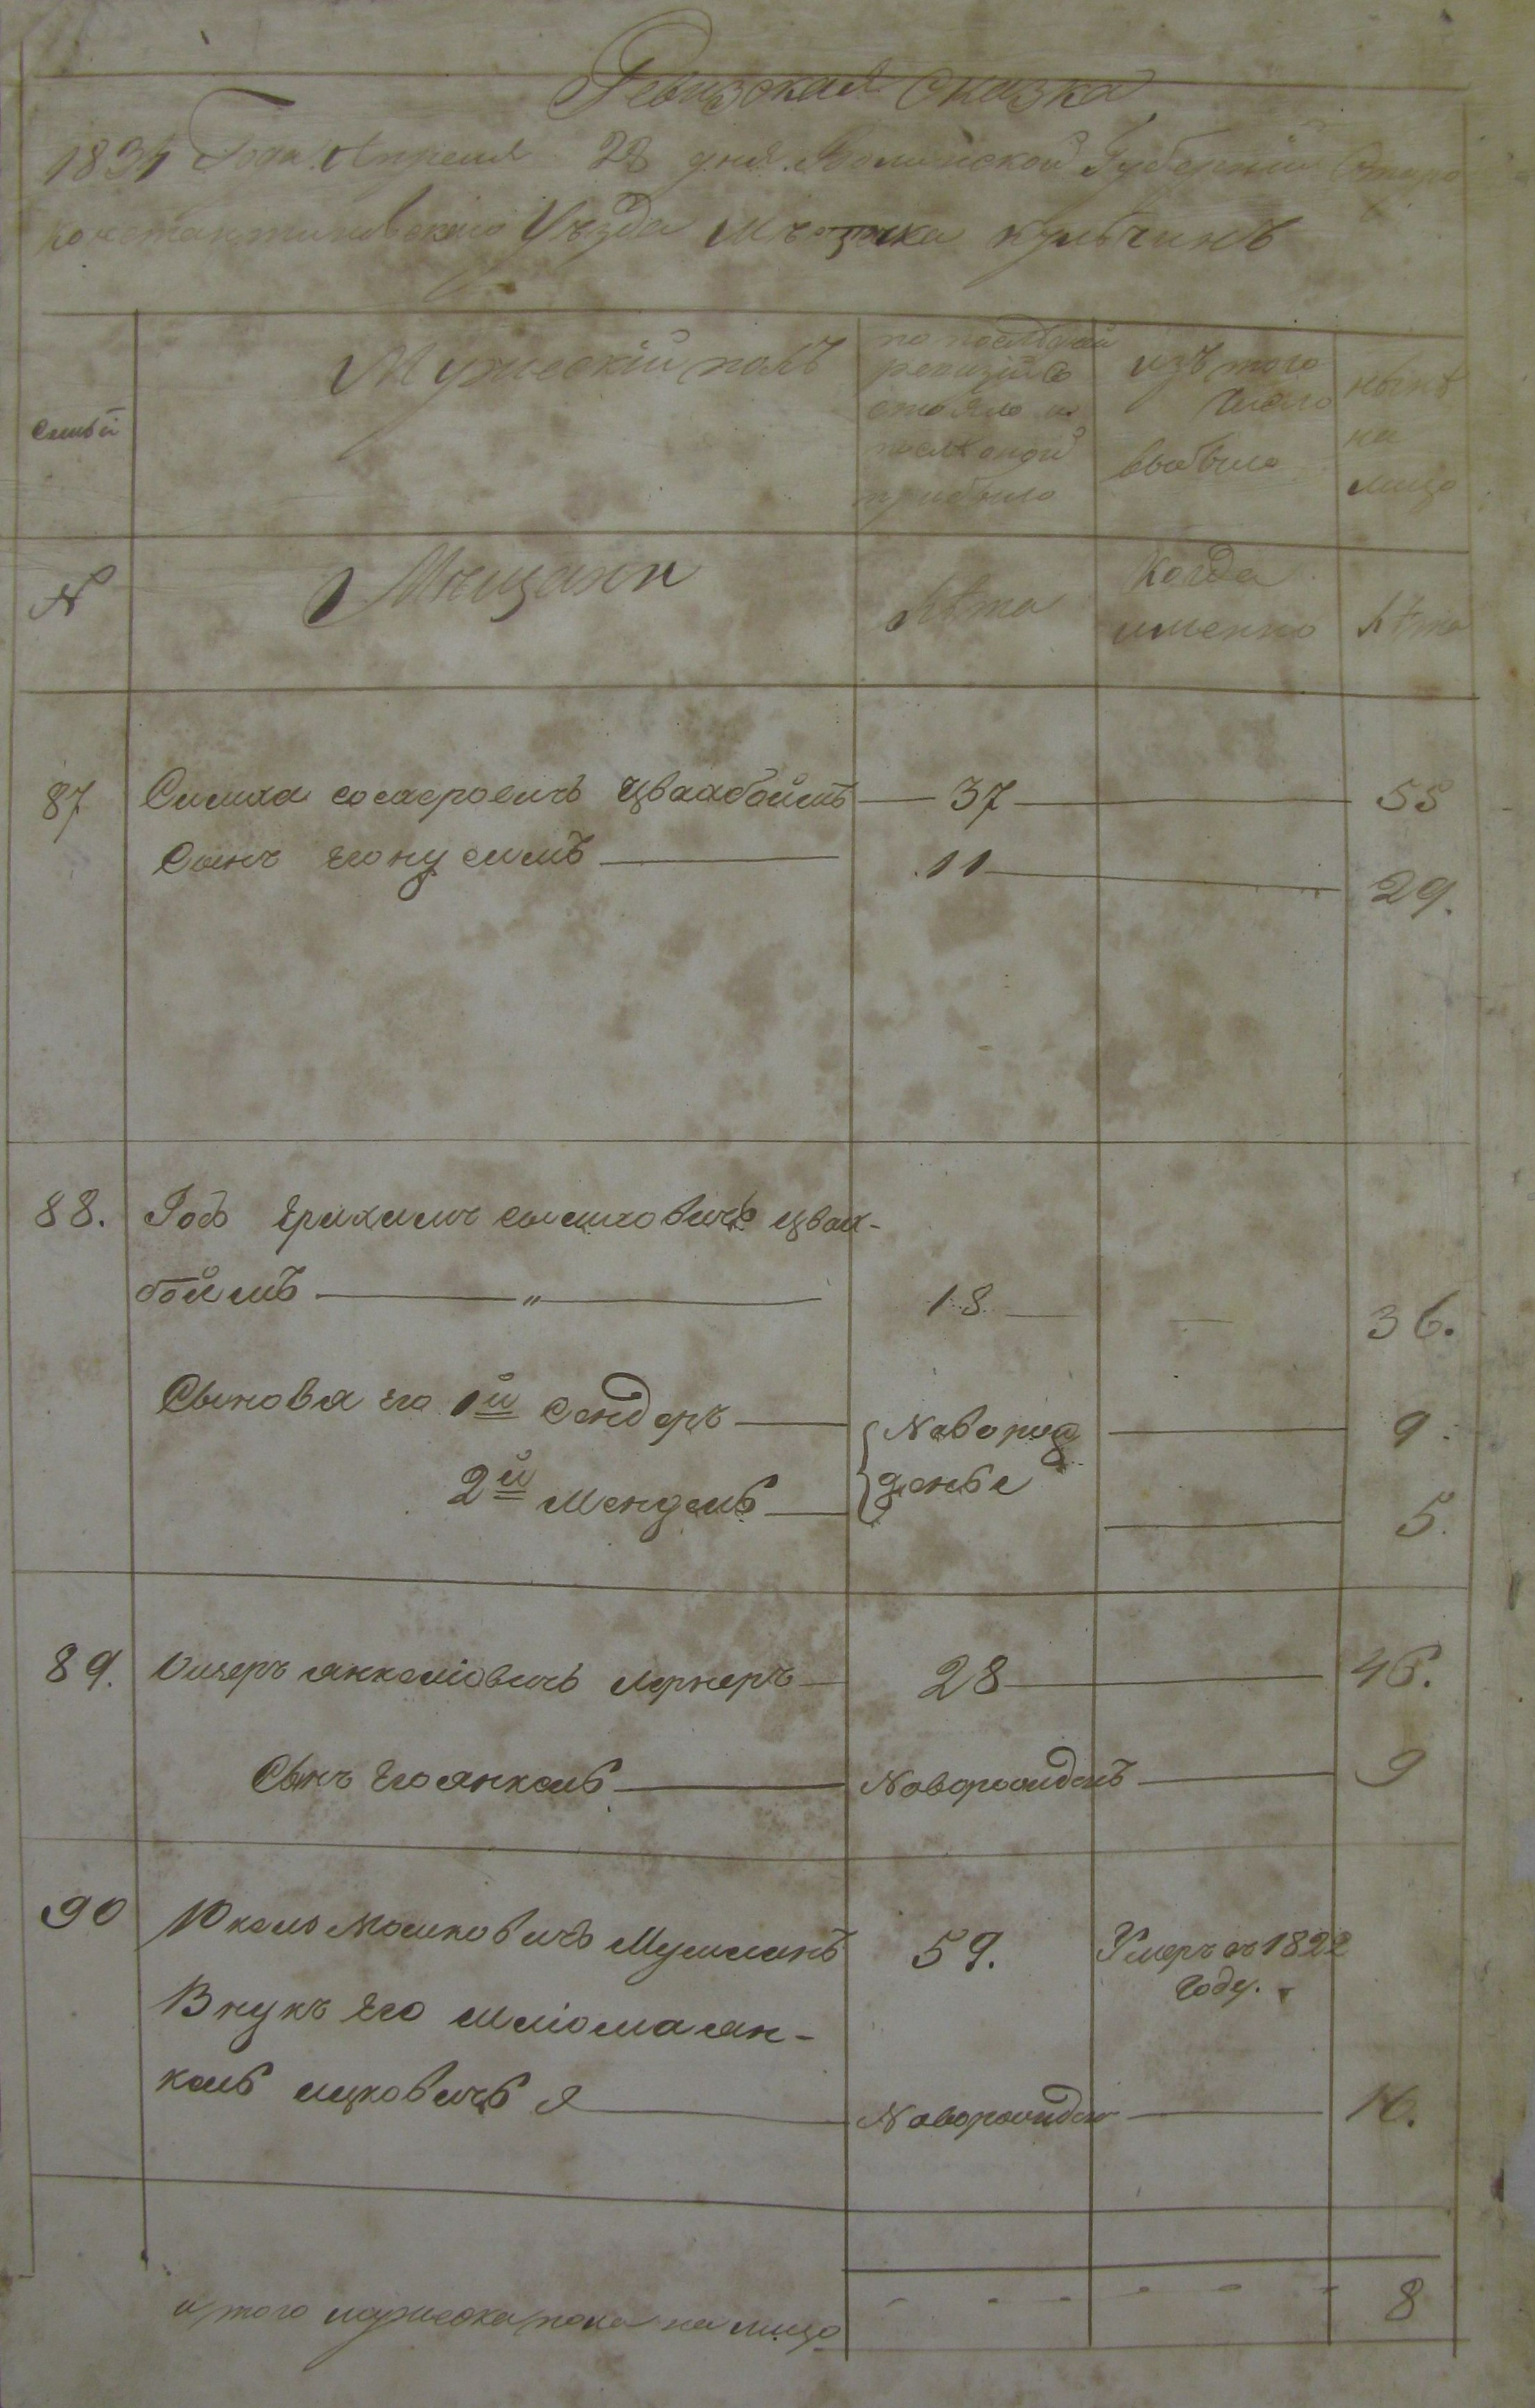 Ревизская Сказка
1834 Года Апреля 28 дня Волынской Губернии Старо
константиновского Уезда Мъстечка Кульчинъ
Семьи
Мужеский полъ
по последней
ревизии со
стояло и
после оной
прибыло
изъ того
числа
выбыло
ныне
на
лицо
N
Мещани
Лѣта
Когда
именно
Лѣта
87 Симха Цвайбоймъ 37 55
Сынъ его Нусимъ 11 29.
88. Годъ Ерихимъ Симховичъ Цвай-
боймъ 18 36.
Сыновья его 1й Сендеръ Новорож 9.
2й Мендель деные 5.
89. Ошеръ Янкелiовичъ Лернеръ 28 46.
Сынъ Его Янкель Новорожденъ 9
90 Юкель Мошковичъ Мушманъ 59. Умеръ въ 1822
году.
Внукъ Его Шлiома Ян-
кель Ицковичъ Новорожден 16.
итого мужеска пола на лицо 8